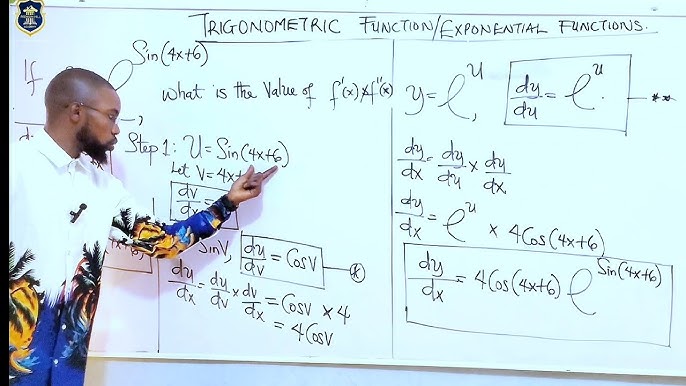 TRIGONOMETRIC FUNCTION/EXPONENTIAL FUNCTIONS.
If e^Sin(4x+6),
What is the Value of f'(x) & f''(x)
Step 1: U = Sin(4x+6)
Let V = 4x+
dv/dx =
SinV, du/dv = CosV
du/dx = du/dv × dv/dx = CosV × 4
= 4CosV
y = e^u, dy/du = e^u. **
dy/dx = dy/du × du/dx
dy/dx = e^u × 4Cos(4x+6)
dy/dx = 4Cos(4x+6) e^Sin(4x+6)